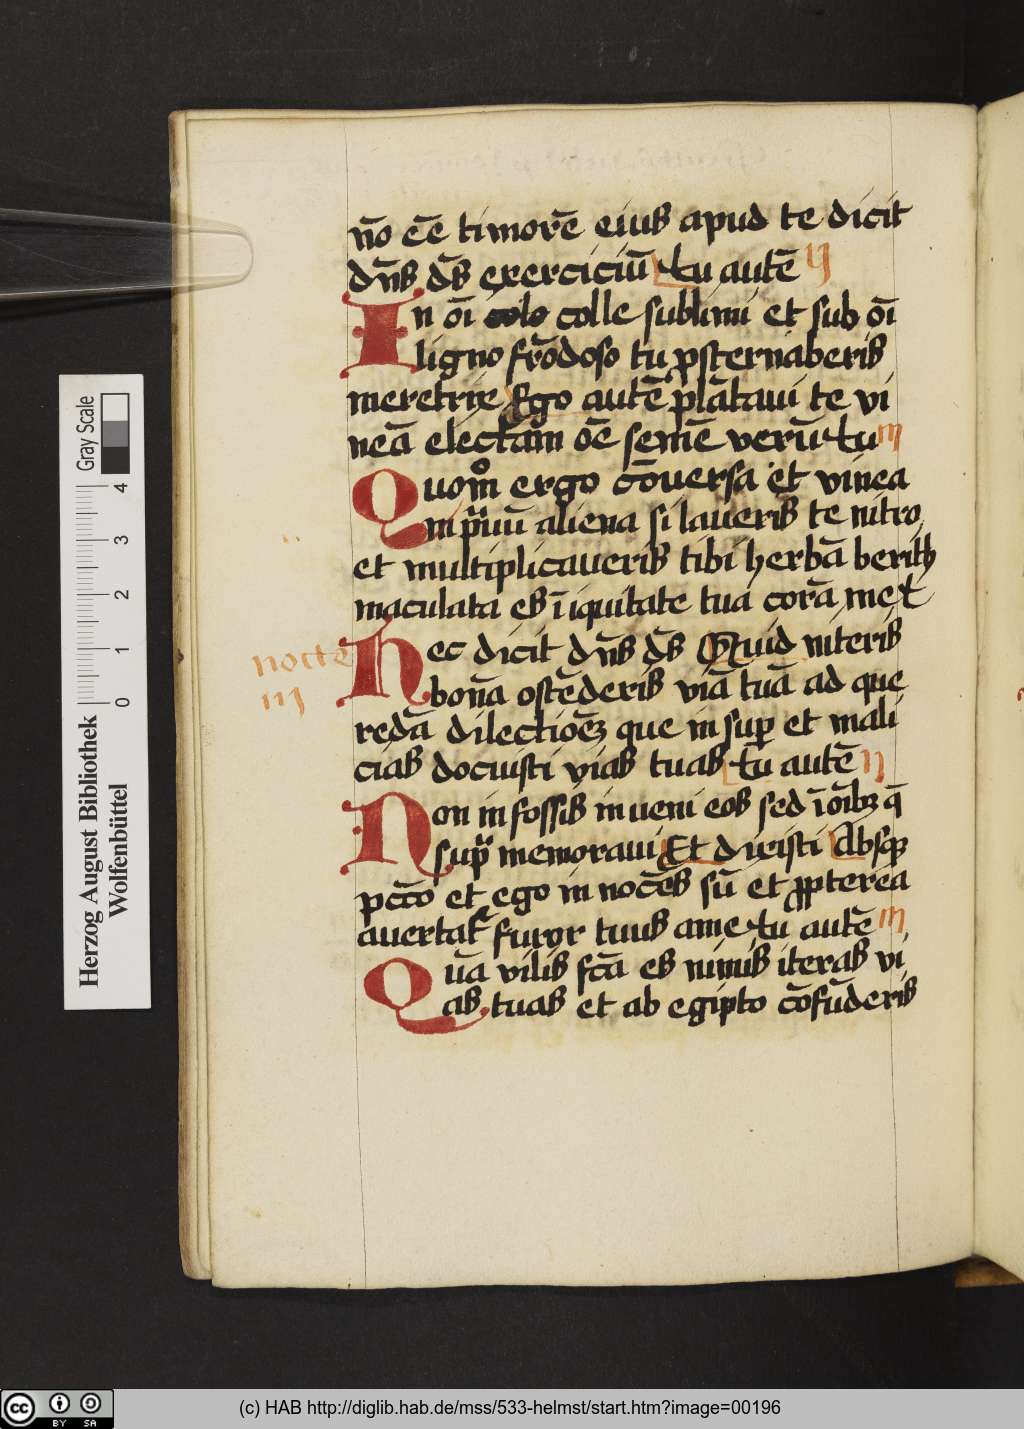 nō eē timorē eius apud te dicit
dn̄s ds̄ exerciciū tu autē ij
In oī colo colle sublimi et sub oī
ligno frōdoso tu prosternaberis
meretrix Ego autē plātavi te vi
neā electam oē semē verū tu iij
Quom̊ ergo cōversa et vinea
in pravū aliena si laveris te nitro
et multiplicaveris tibi herbā berith
maculata es ī iquitate tua corā me t
nocte iij
Hec dicit dn̄s ds̄ Quid niteris
bonā ostēderis viā tuā ad que
redā dilectionē que insuper et mali
cias docuisti vias tuas tu autē ij
Non in fossis inveni eos sed ī oīb; q̄
supra memoravi Et dixisti Absq;
pcc̄o et ego innocēs sū et propterea
avertat᷑ furor tuus a me tu autē iij
Quā vilis fcā es nimis iteras vi
as tuas et ab egipto cōfūderis
Gray Scale
0 1 2 3 4
Herzog August Bibliothek
Wolfenbüttel
cc BY SA
(c) HAB http://diglib.hab.de/mss/533-helmst/start.htm?image=00196